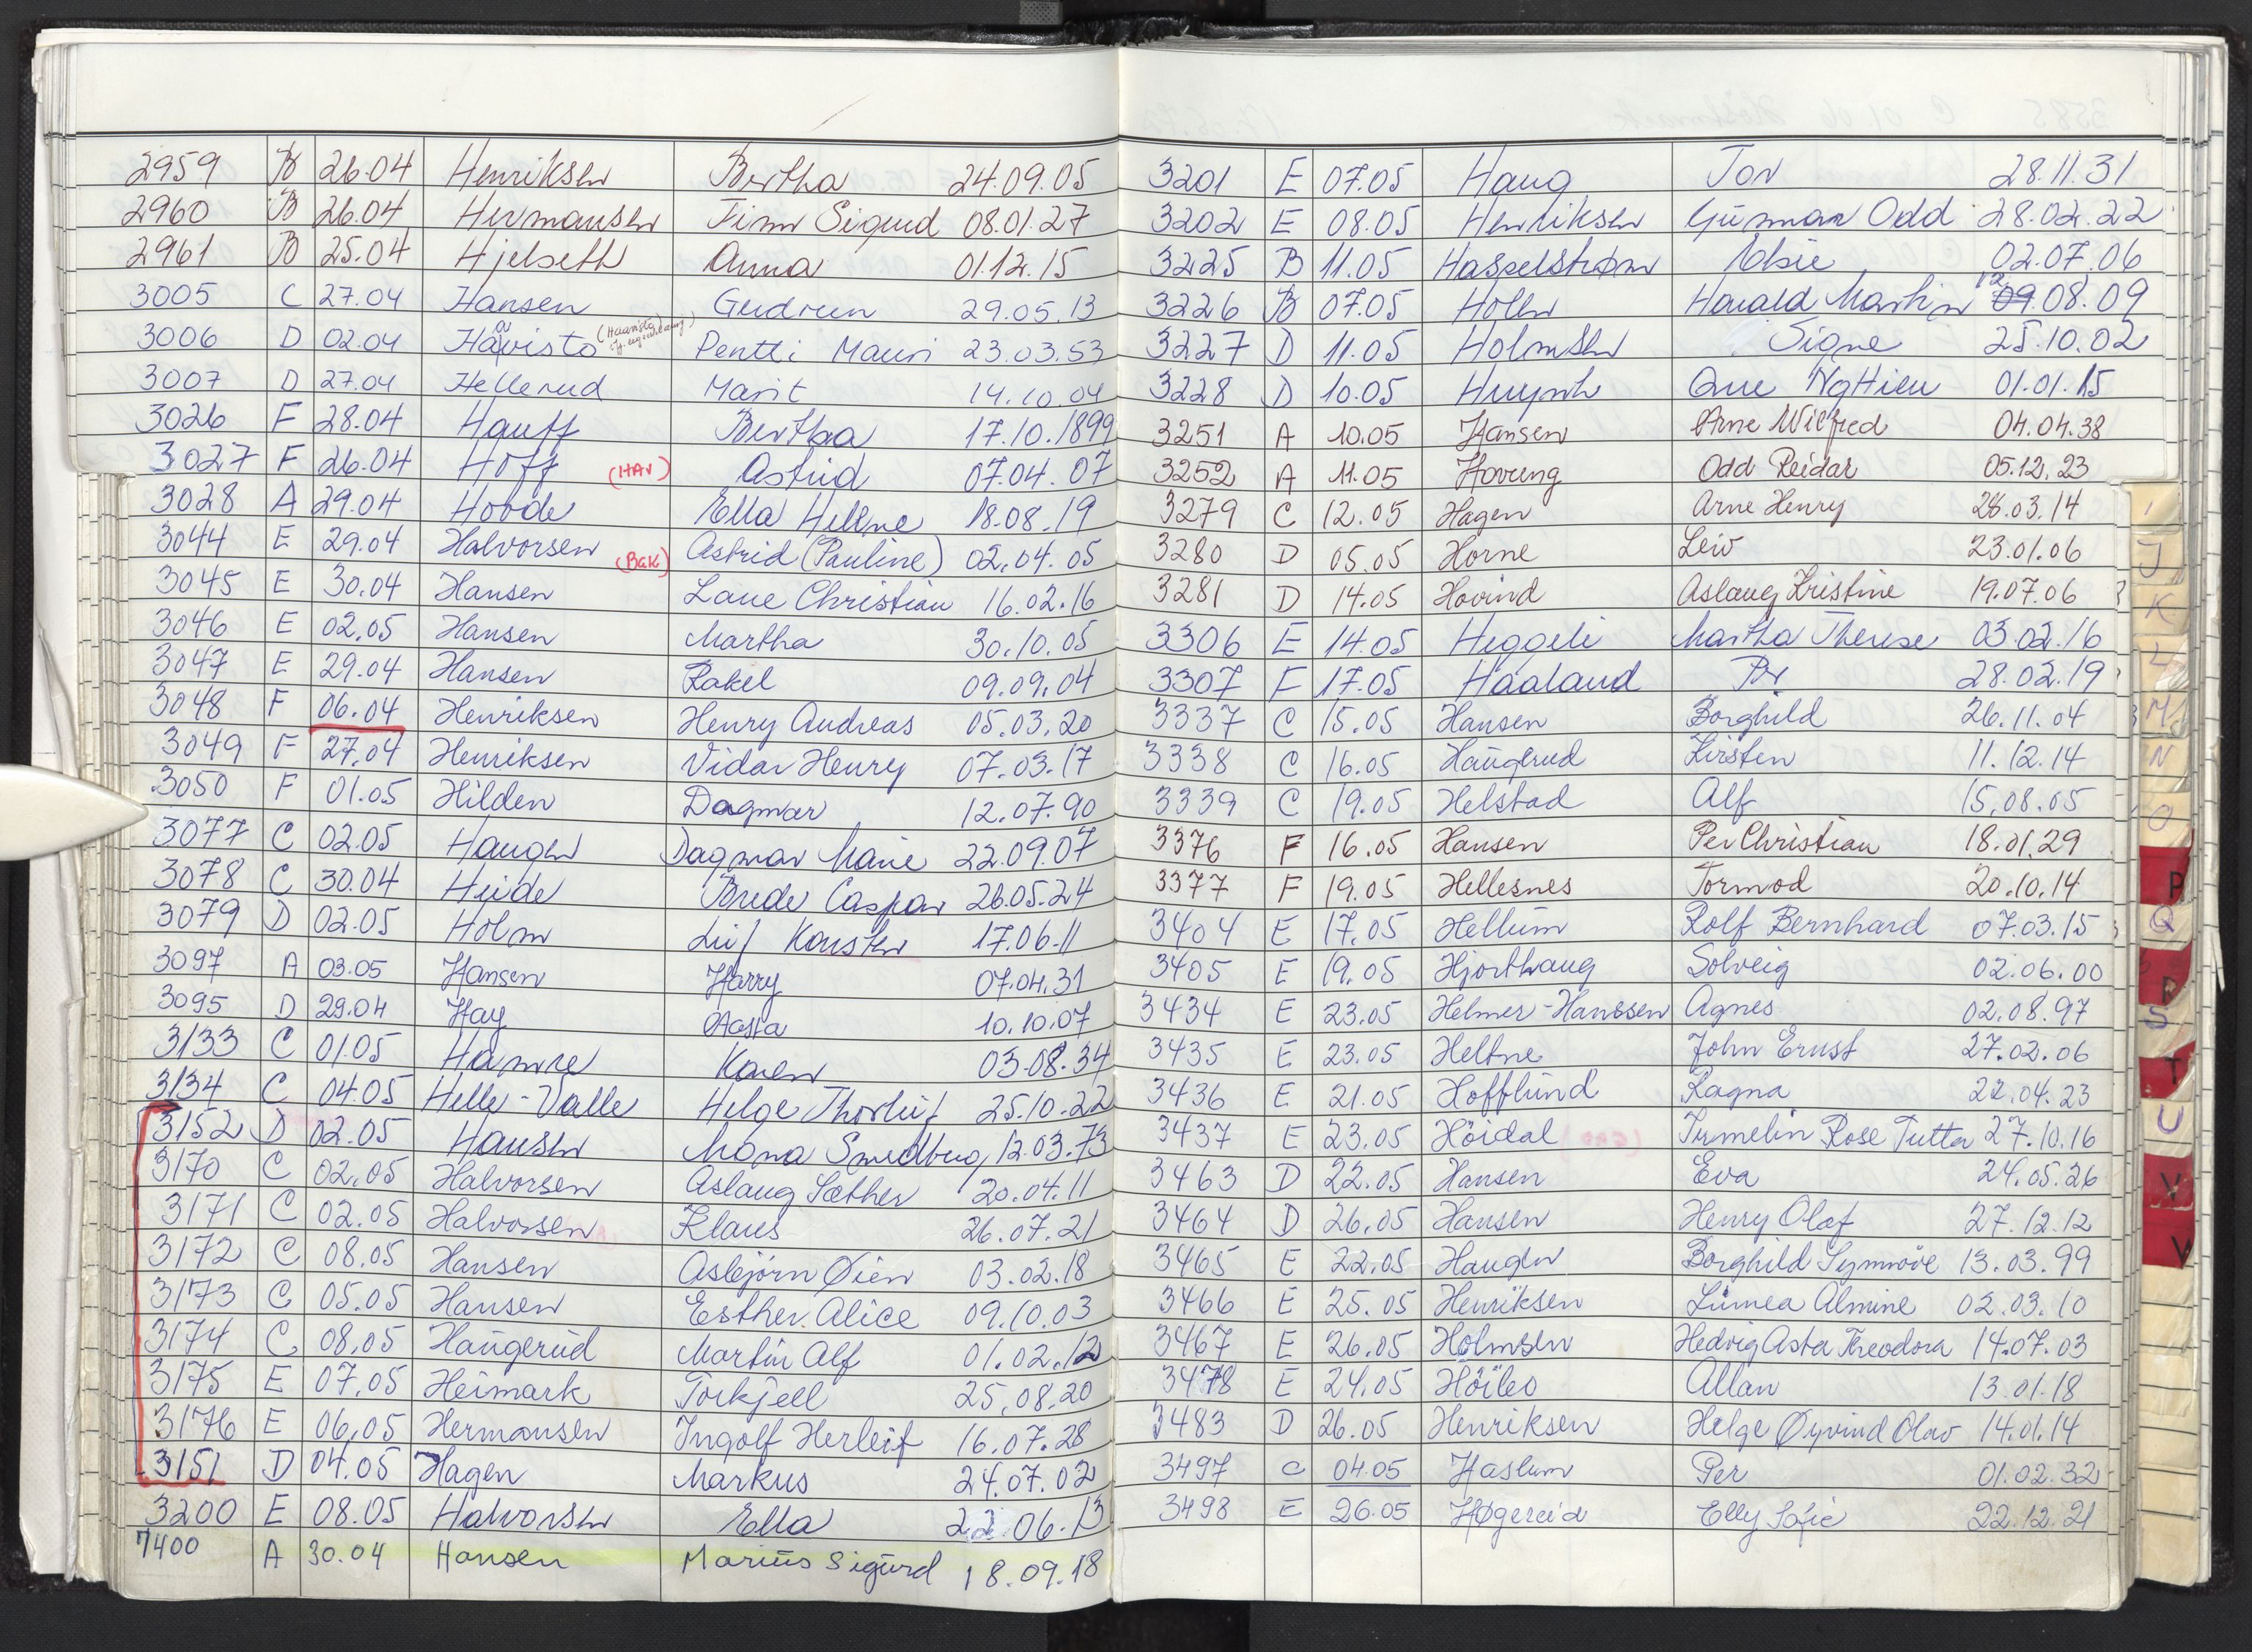 2959 B 26.04 Henriksen Bertha 24.09.05
2960 B 26.04 Hermansen Finn Sigurd 08.01.27
2961 B 25.04 Hjelseth Anna 01.12.15
3005 C 27.04 Hansen Gudrun 29.05.13
3006 D 02.04 Håvisto Pentti Mauri 23.03.53
3007 D 27.04 Hellerud Marit 14.10.04
3026 F 28.04 Hauff Bertha 17.10.1899
3027 F 26.04 Hoff (HAV) Astrid 07.04.07
3028 A 29.04 Hovde Ella Helene 18.08.19
3044 E 29.04 Halvorsen (BAK) Astrid (Pauline) 02.04.05
3045 E 30.04 Hansen Laue Christian 16.02.16
3046 E 02.05 Hansen Martha 30.10.05
3047 E 29.04 Hansen Rakel 09.09.04
3048 F 06.04 Henriksen Henry Andreas 05.03.20
3049 F 27.04 Henriksen Vidar Henry 07.03.17
3050 F 01.05 Hilden Dagmar 12.07.90
3077 C 02.05 Haugen Dagmar Marie 22.09.07
3078 C 30.04 Heide Brede Caspar 26.05.24
3079 D 02.05 Holm Leif Karsten 17.06.11
3097 A 03.05 Hansen Harry 07.04.31
3095 D 29.04 Hay Aasta 10.10.07
3133 C 01.05 Hamre Karen 03.08.34
3134 C 04.05 Helle-Valle Helge Thorleif 25.10.22
3152 D 02.05 Hansen Mona Smedberg 12.03.73
3170 C 02.05 Halvorsen Aslaug Sæther 20.04.11
3171 C 02.05 Halvorsen Klaus 26.07.21
3172 C 08.05 Hansen Asbjørn Øien 03.02.18
3173 C 05.05 Hansen Esther Alice 09.10.03
3174 C 08.05 Haugerud Martin Alf 01.02.12
3175 E 07.05 Heimark Torkjell 25.08.20
3176 E 06.05 Hermansen Ingolf Herleif 16.07.28
3151 D 04.05 Hagen Markus 24.07.02
3200 E 08.05 Halvorsen Ella 22.06.13
7400 A 30.04 Hansen Marius Sigurd 18.09.18
3201 E 07.05 Haug Tor 28.11.31
3202 E 08.05 Henriksen Gunnar Odd 28.02.22
3225 B 11.05 Hasselstrøm Elsie 02.07.06
3226 B 07.05 Holler Harald Martin 12 09.08.09
3227 D 11.05 Holmsen Signe 25.10.02
3228 D 10.05 Huynh Que NgHieu 01.01.15
3251 A 10.05 Hansen Arne Wilfred 04.04.38
3252 A 11.05 Hoveng Odd Reidar 05.12.23
3279 C 12.05 Hagen Arne Henry 26.03.14
3280 D 05.05 Horne Leiv 23.01.06
3281 D 14.05 Hovind Aslaug Kristine 19.07.06
3306 E 14.05 Heggeli Martha Therese 03.02.16
3307 F 17.05 Haaland Per 28.02.19
3337 C 15.05 Hansen Borghild 26.11.04
3338 C 16.05 Haugerud Kirsten 11.12.14
3339 C 19.05 Helstad Alf 15.08.05
3376 F 16.05 Hansen Per Christian 18.01.29
3377 F 19.05 Hellesnes Tormod 20.10.14
3404 E 17.05 Hellum Rolf Bernhard 07.03.15
3405 E 19.05 Hjorthaug Solveig 02.06.00
3434 E 23.05 Helmer-Hanssen Agnes 02.08.97
3435 E 23.05 Heltne John Ernst 27.02.06
3436 E 21.05 Hofflund Ragna 22.04.23
3437 E 23.05 Höidal Irmelin Rose Tutta 27.10.16
3463 D 22.05 Hansen Eva 24.05.26
3464 D 26.05 Hansen Henry Olaf 27.12.12
3465 E 22.05 Haugen Borghild Synnöve 13.03.99
3466 E 25.05 Henriksen Linnea Almine 02.03.10
3467 E 26.05 Holmsen Hedvig Asta Theodora 14.07.03
3478 E 24.05 Höilo Allan 13.01.18
3483 D 26.05 Henriksen Helge Øyvind Olav 14.01.14
3497 C 04.05 Haslum Per 01.02.32
3498 E 26.05 Høgereid Elly Sofie 22.12.21
J
K
L
M
N
O
P
Q
R
S
T
U
V